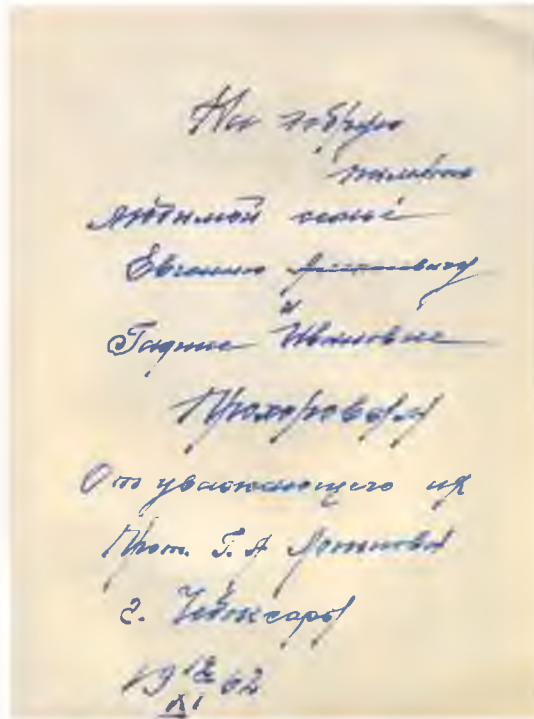 На добрую
память
любимой семье
Евгению
и
Галине Ивановне
Прохоровым
От уважающего их
Прот. Г. А
г. Чебоксары
19 12/XI 62